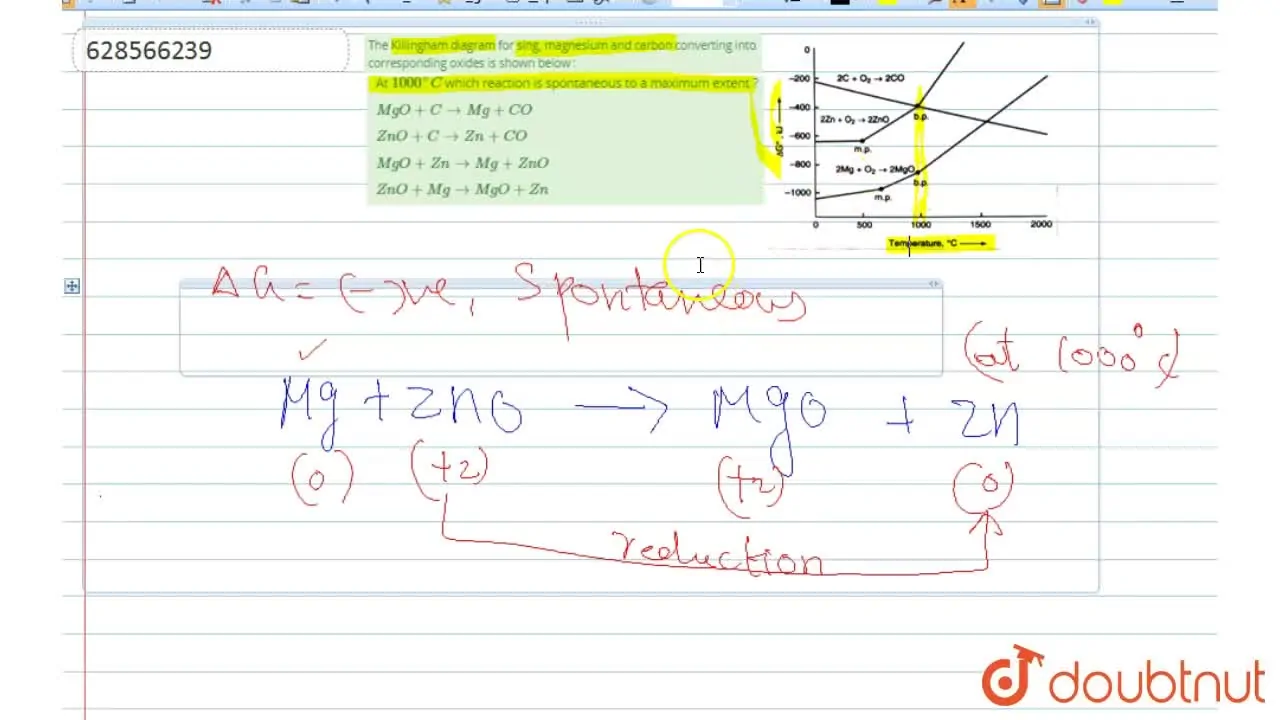 628566239
The Killingham diagram for sing, magnesium and carbon converting into
corresponding oxides is shown below :
At 1000°C which reaction is spontaneous to a maximum extent ?
MgO + C → Mg + CO
ZnO + C → Zn + CO
MgO + Zn → Mg + ZnO
ZnO + Mg → MgO + Zn
0
-200
-400
-600
-800
-1000
ΔG°, kJ
2C + O₂ → 2CO
b.p.
2Zn + O₂ → 2ZnO
m.p.
2Mg + O₂ → 2MgO
b.p.
m.p.
0 500 1000 1500 2000
Temperature, °C
ΔG = (-)ve, Spontaneous
(at 1000°C)
✓
Mg + ZnO → MgO + Zn
(0) (+2) (+2) (0)
reduction
doubtnut